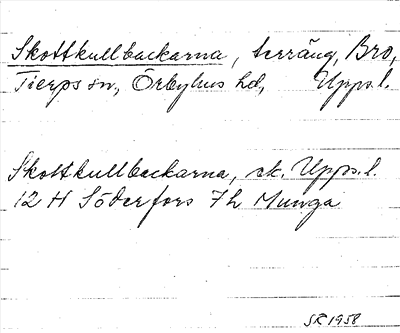 Skottkullbackarna, terräng, Bro,
Tierps sn, Örbyhus hd, Upps. l.
Skottkullbackarna, ek. Upps. l.
12 H Söderfors 7h Munga
SR 1958